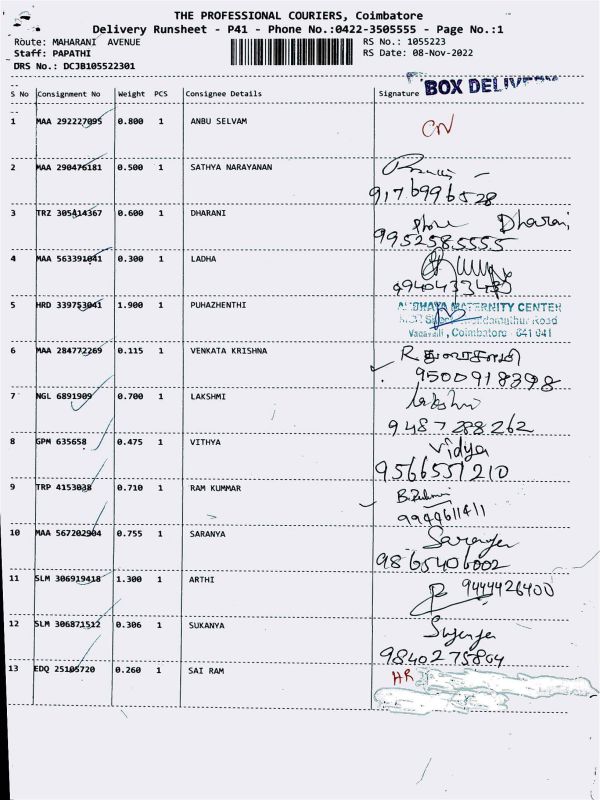 THE PROFESSIONAL COURIERS, Coimbatore
Delivery Runsheet - P41 - Phone No.:0422-3505555 - Page No.:1
Route: MAHARANI AVENUE RS No.: 1055223
Staff: PAPATHI RS Date: 08-Nov-2022
DRS No.: DCJB105522301
BOX DELIVERY
S No Consignment No Weight PCS Consignee Details Signature
1 MAA 292227095 0.800 1 ANBU SELVAM
2 MAA 290476181 0.500 1 SATHYA NARAYANAN
9176996528
3 TRZ 305414367 0.600 1 DHARANI Dharani
9952585555
4 MAA 563391041 0.300 1 LADHA
5 HRD 339753041 1.900 1 PUHAZHENTHI MATERNITY CENTER
Road
Vadavalli, Coimbatore 641 041
6 MAA 284772269 0.115 1 VENKATA KRISHNA R.
9500918398
7 NGL 6891909 0.700 1 LAKSHMI Lakshmi
9487288262
8 GPM 635658 0.475 1 VITHYA Vidya
9566551210
9 TRP 4153038 0.710 1 RAM KUMMAR
9944611411
10 MAA 567202904 0.755 1 SARANYA Saranya
9865406002
11 SLM 306919418 1.300 1 ARTHI 9444426400
12 SLM 306871512 0.306 1 SUKANYA
9840275804
13 EDQ 25105720 0.260 1 SAI RAM HR